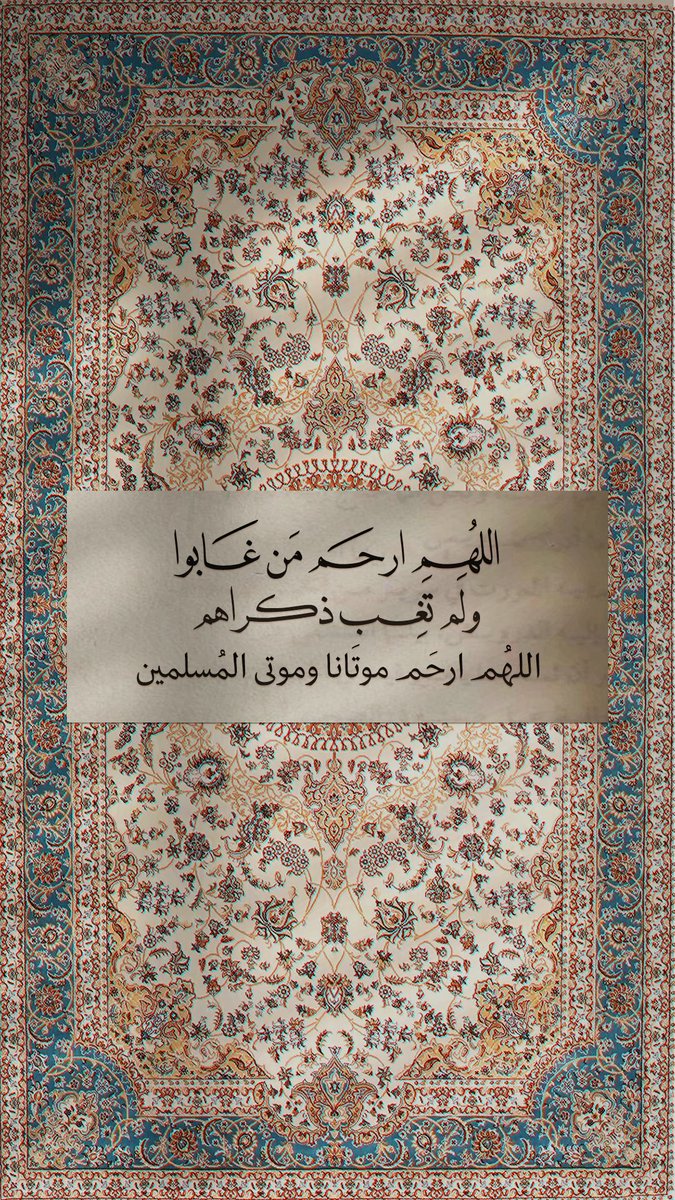 اللهُمِ ارحَم مَن غَابوا
ولم تغِب ذكراهم
اللهُم ارحَم موتَانا وموتى المُسلمين